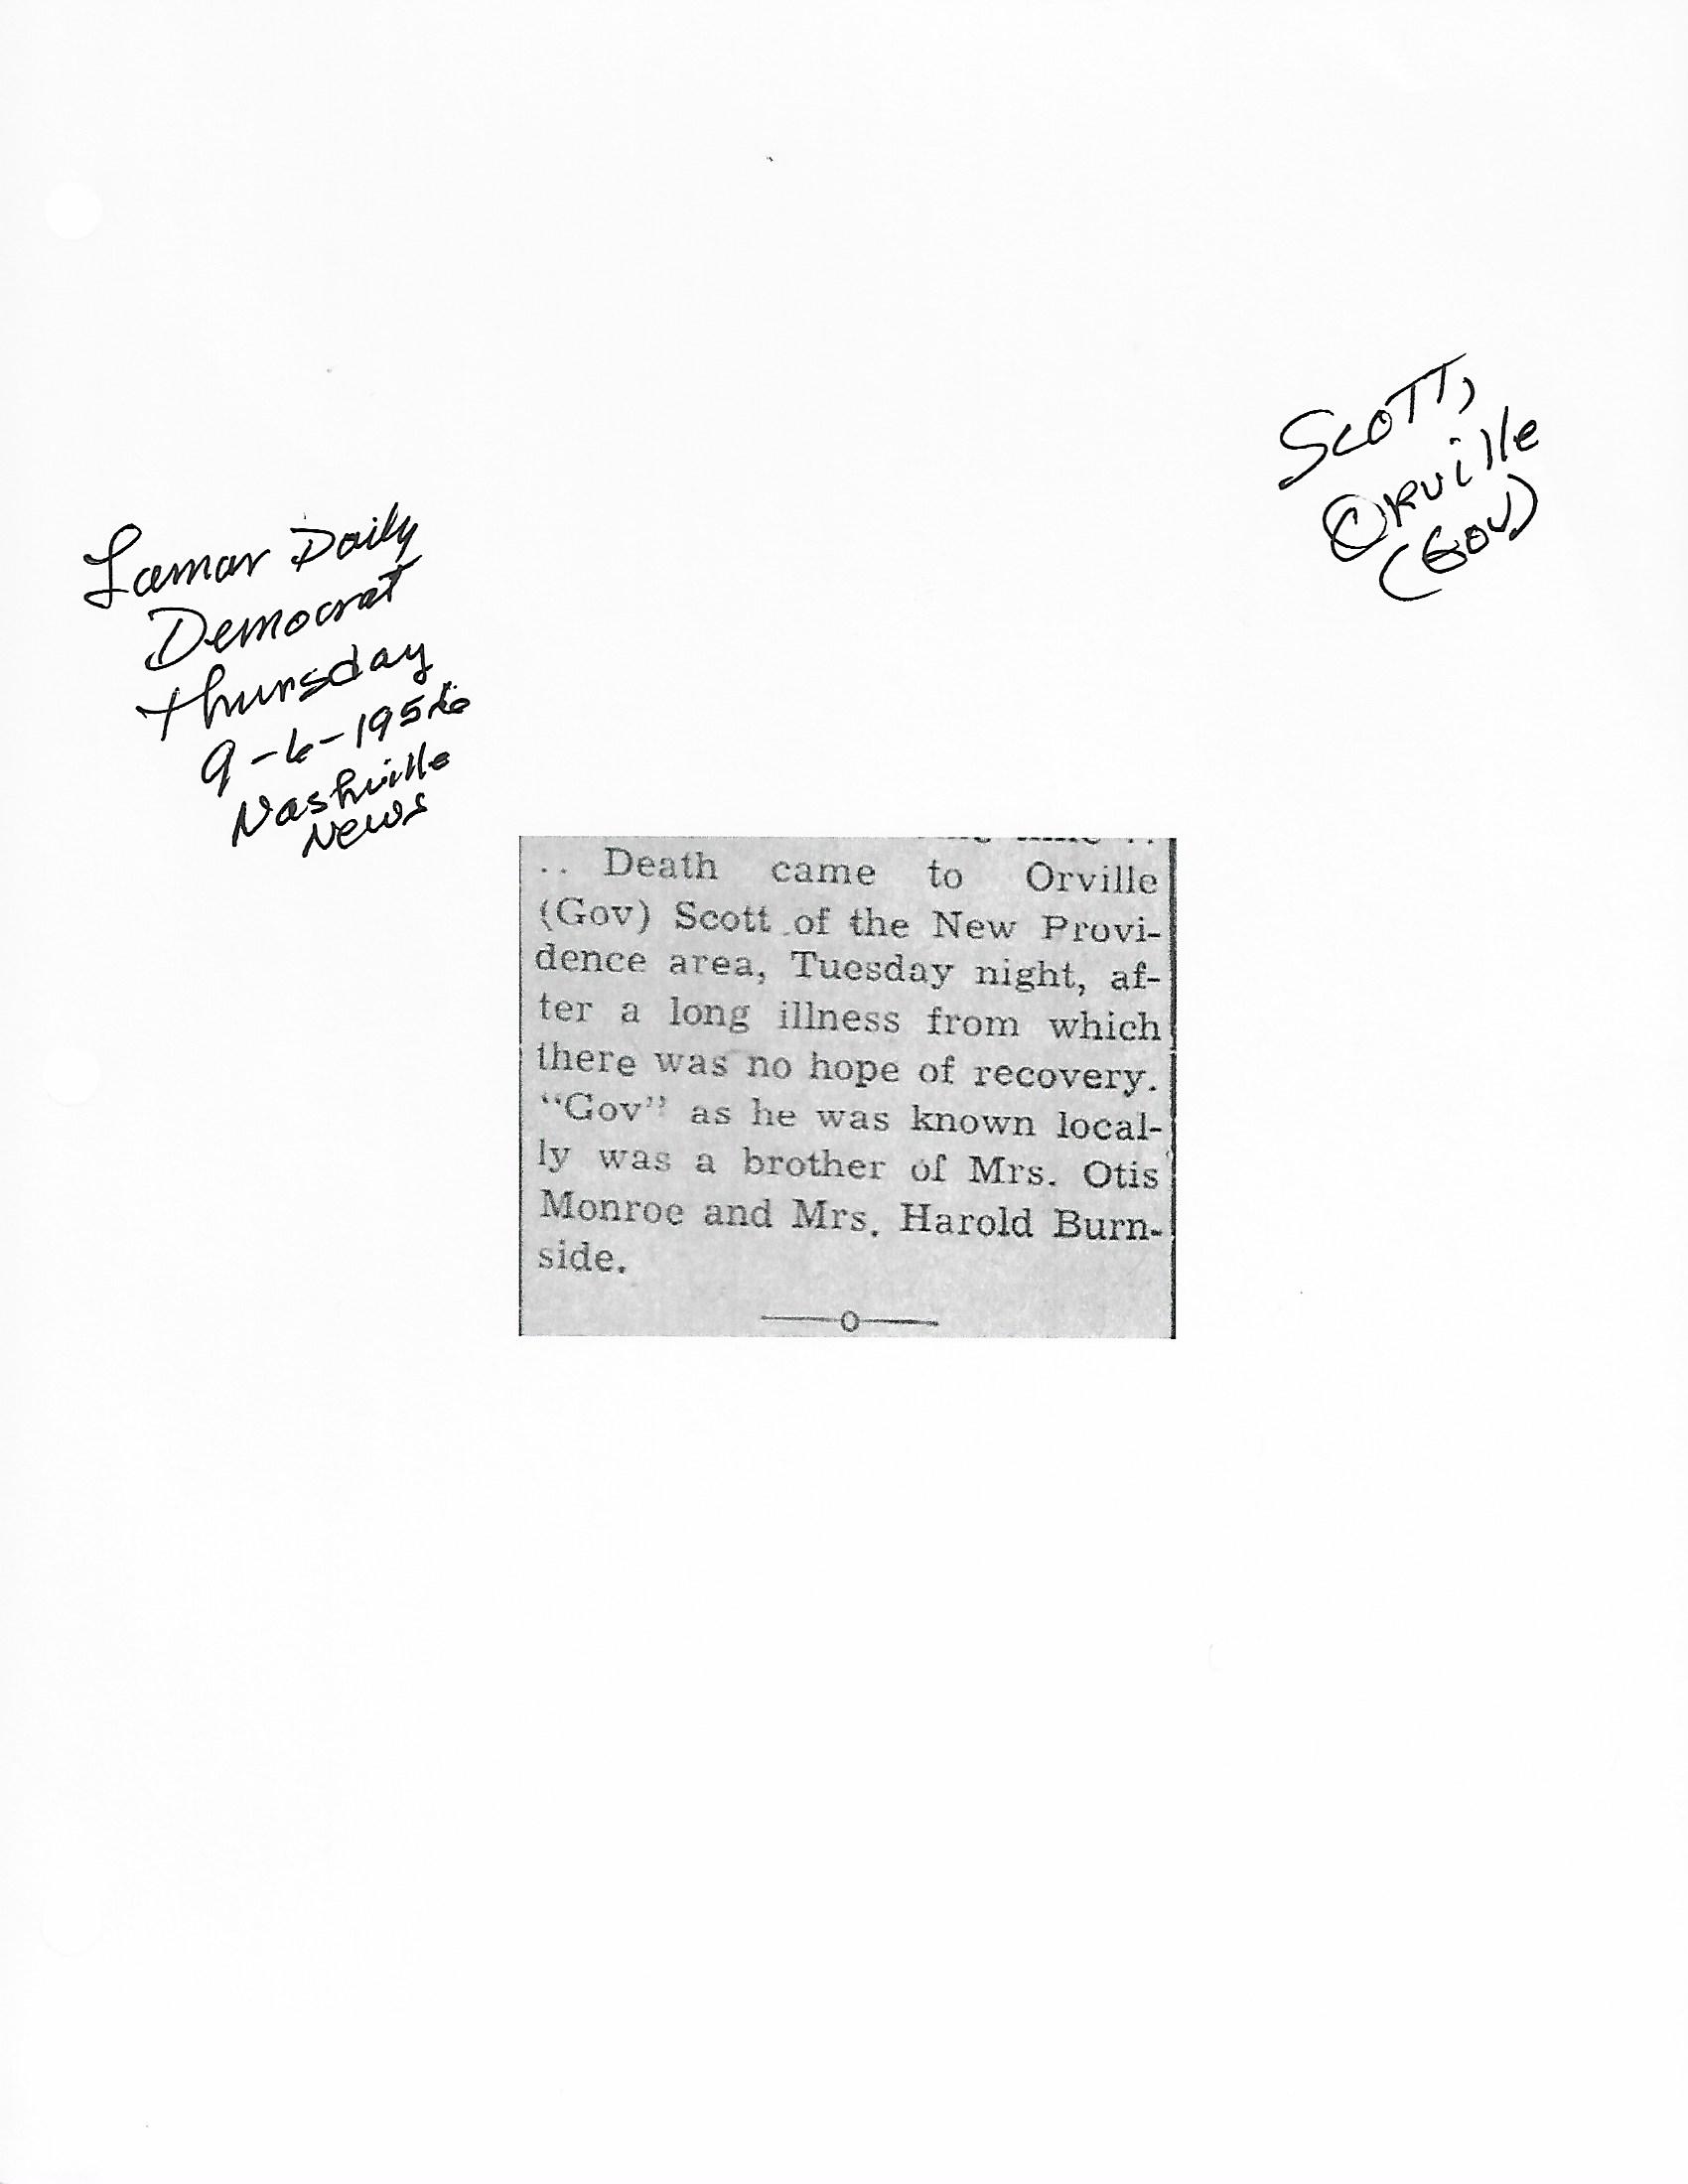 Scott,
Orville
(Gov)
Lamar Daily
Democrat
Thursday
9-6-1956
Nashville
News
.. Death came to Orville
(Gov) Scott of the New Provi-
dence area, Tuesday night, af-
ter a long illness from which
there was no hope of recovery.
"Gov" as he was known local-
ly was a brother of Mrs. Otis
Monroe and Mrs. Harold Burn-
side.